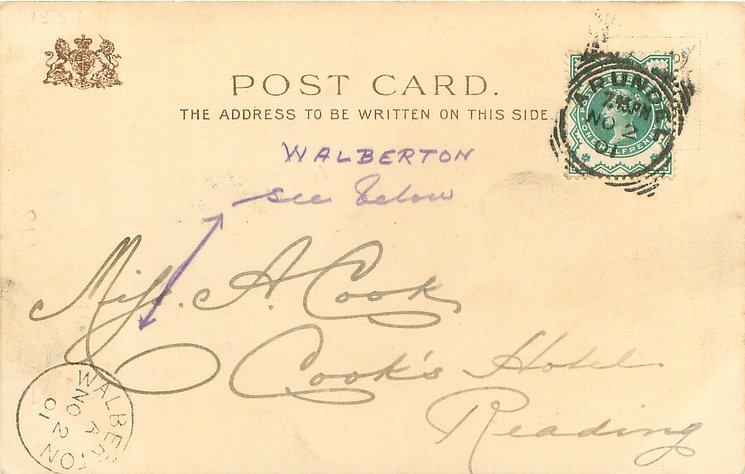 1551
POST CARD.
THE ADDRESS TO BE WRITTEN ON THIS SIDE.
ARUNDEL
7.15PM
NO 2
01
ONE HALFPENNY
WALBERTON
see below
Miss. A. Cook
Cook's Hotel
Reading
WALBERTON
A
NO 2
01